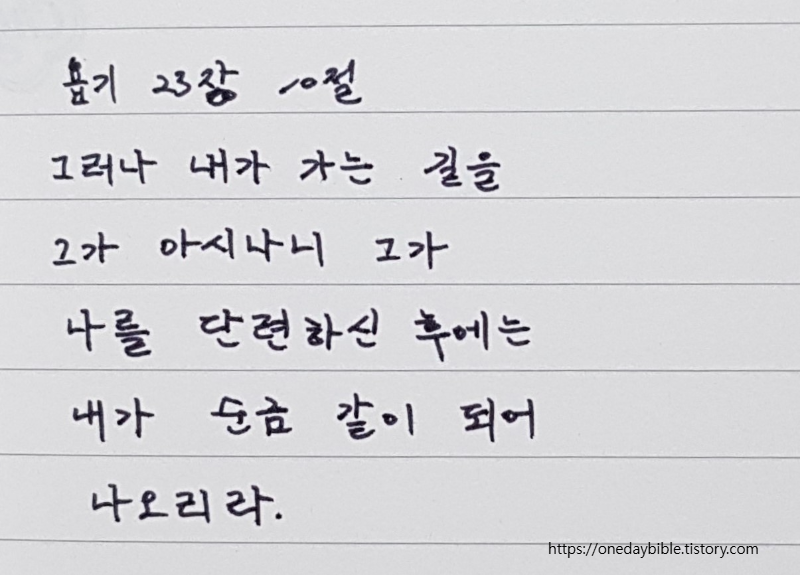 욥기 23장 10절
그러나 내가 가는 길을
그가 아시나니 그가
나를 단련하신 후에는
내가 순금 같이 되어
나오리라.
https://onedaybible.tistory.com